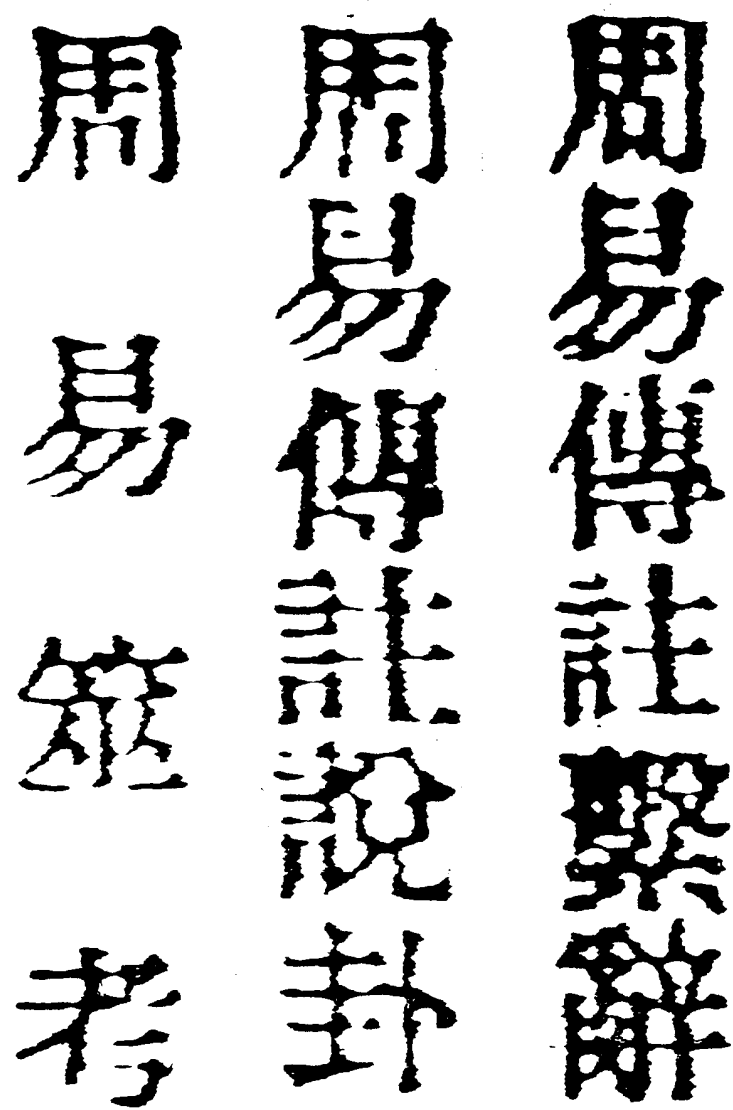 周易傳註繫辭
周易傳註說卦
周易筮考